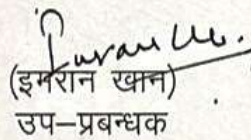 (इमरान खान)
उप-प्रबन्धक